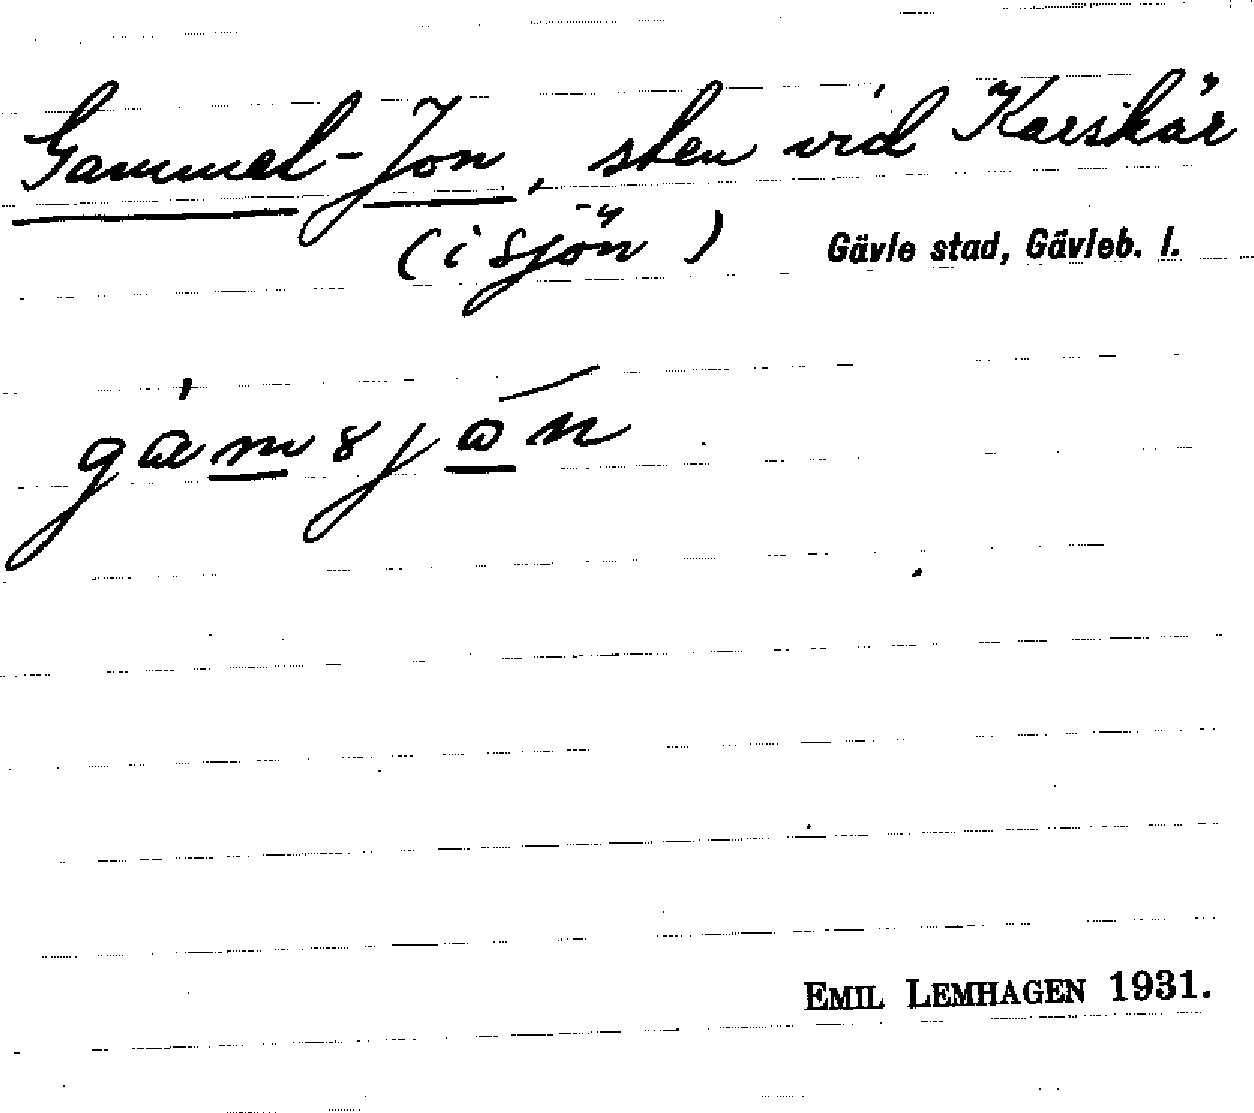 Gammel-Jon, sten vid Karskär
(i sjön)
Gävle stad, Gävleb. l.
EMIL LEMHAGEN 1931.